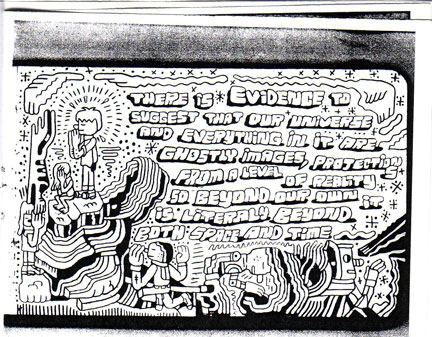 THERE IS EVIDENCE TO
SUGGEST THAT OUR UNIVERSE
AND EVERYTHING IN IT ARE
GHOSTLY IMAGES, PROJECTIONS
FROM A LEVEL OF REALITY
SO BEYOND OUR OWN IT
IS LITERALLY BEYOND
BOTH SPACE AND TIME